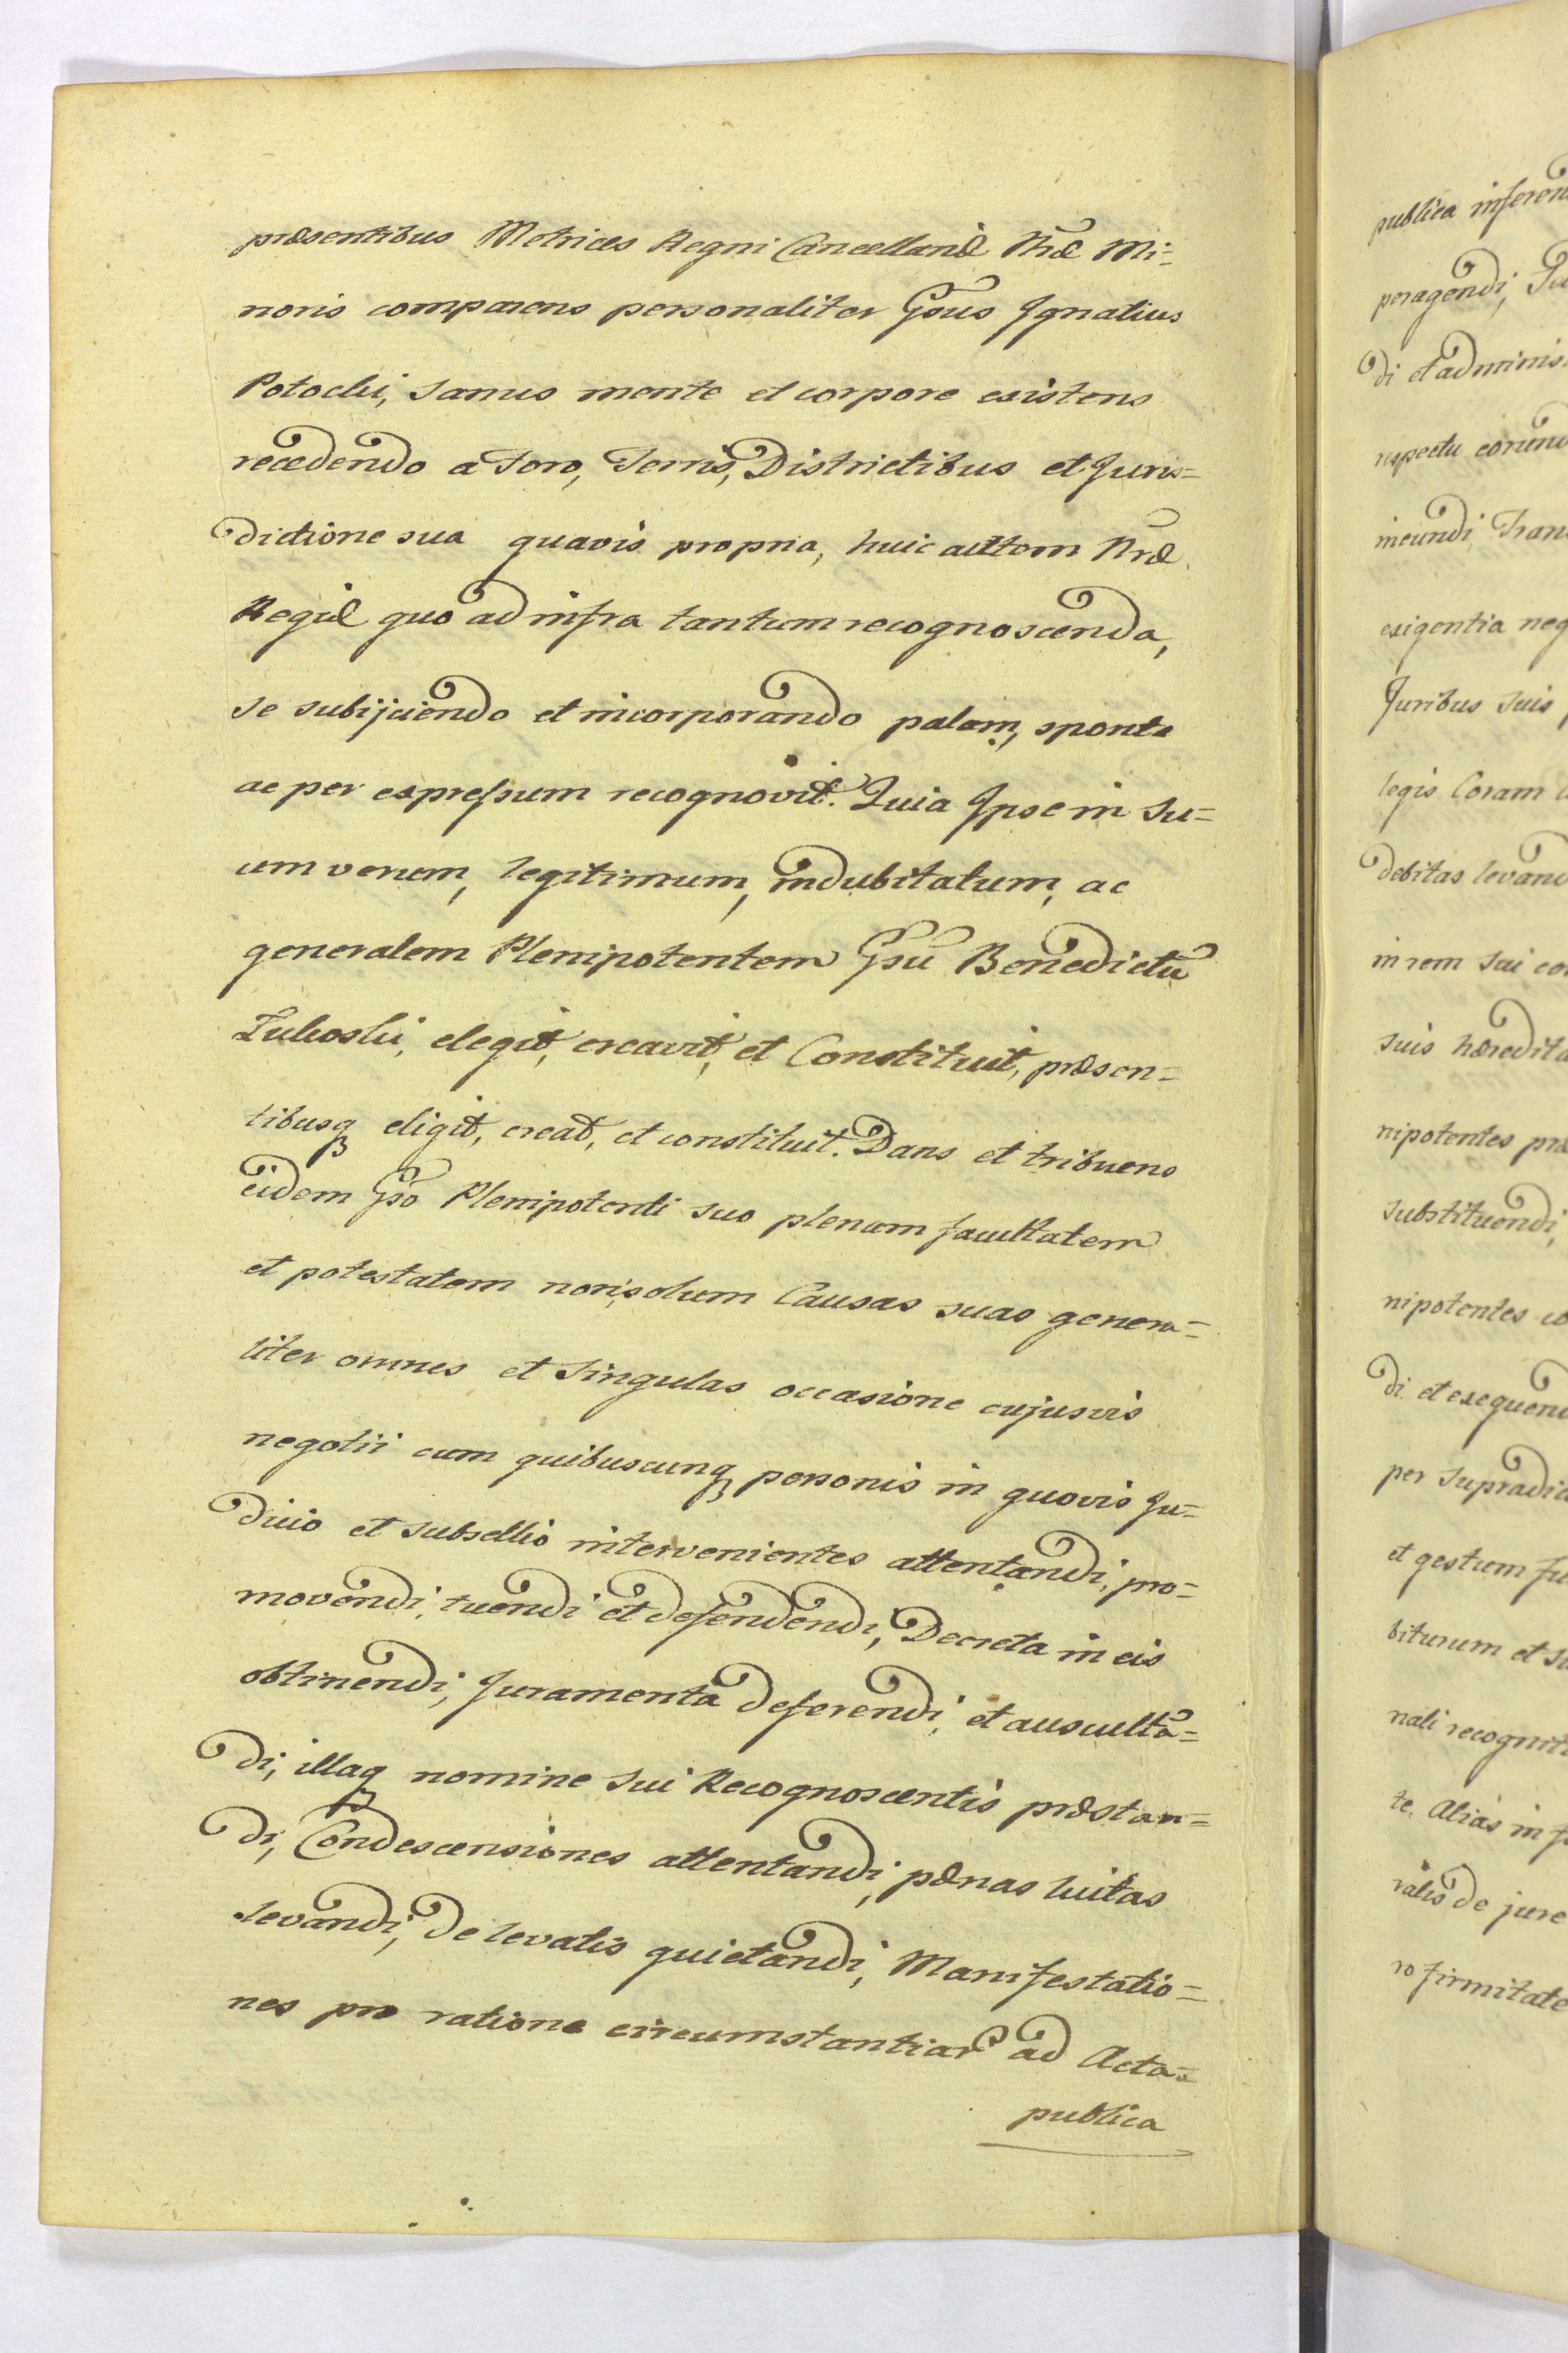 præsentibus Metrices Regni Cancellariæ Nræ Mi=
noris comparens personaliter Gsus Ignatius
Potocki, sanus mente et corpore existens
recedendo a foro, Terris, Districtibus et Juris=
dictione sua quavis propria, huic auttem Nræ
Regiæ quo ad infra tantum recognoscenda,
se subijciendo et incorporando palam, sponte
ac per expressum recognovit. Quia Ipse in Su=
um verum, legitimum, indubitatum, ac
generalem Plenipotentem Gsu Benedictu
elegit, creavit, et Constituit, præsen=
tibusq eligit, creat, et constituit. Dans et tribuens
eidem Gso Plenipotenti suo plenam facultatem
et potestatem non solum Causas suas genera=
liter omnes et Singulas occasione cujusvis
negotii cum quibuscunq personis in quovis Ju=
dicio et subsellio intervenientes attentandi, pro=
movendi, tuendi et defendendi, Decreta in eis
obtinendi, Juramenta deferendi, et ausculta=
di, illaq nomine sui Recognoscentis præstan=
di, Condescensiones attentandi, pænas luitas
levandi, de levatis quietandi, Manifestatio=
nes pro ratione circumstantiar ad Acta=
publica
publica inferen
peragendi,
di et adminis
respectu eorund
ineundi, Tran
exigentia neg
Juribus suis
legis Coram
debitas levand
in rem sui co
suis hæredita
nipotentes præ
substituendi,
nipotentes co
di et exequend
per supradic
et gestum fu
biturum et
nali recognit
te. Alias in
ralis de jure
ro firmitate